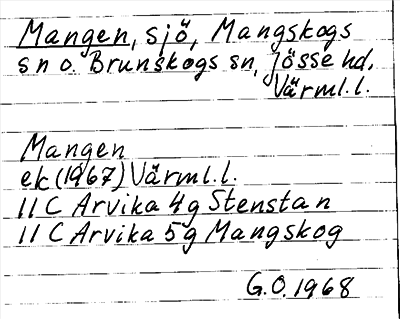 Mangen, sjö, Mangskogs
sn o. Brunskogs sn, Jösse hd,
Värml.l.
Mangen
ek (1967) Värml.l.
11 C Arvika 4g Stenstan
11 C Arvika 5g Mangskog
G.O. 1968